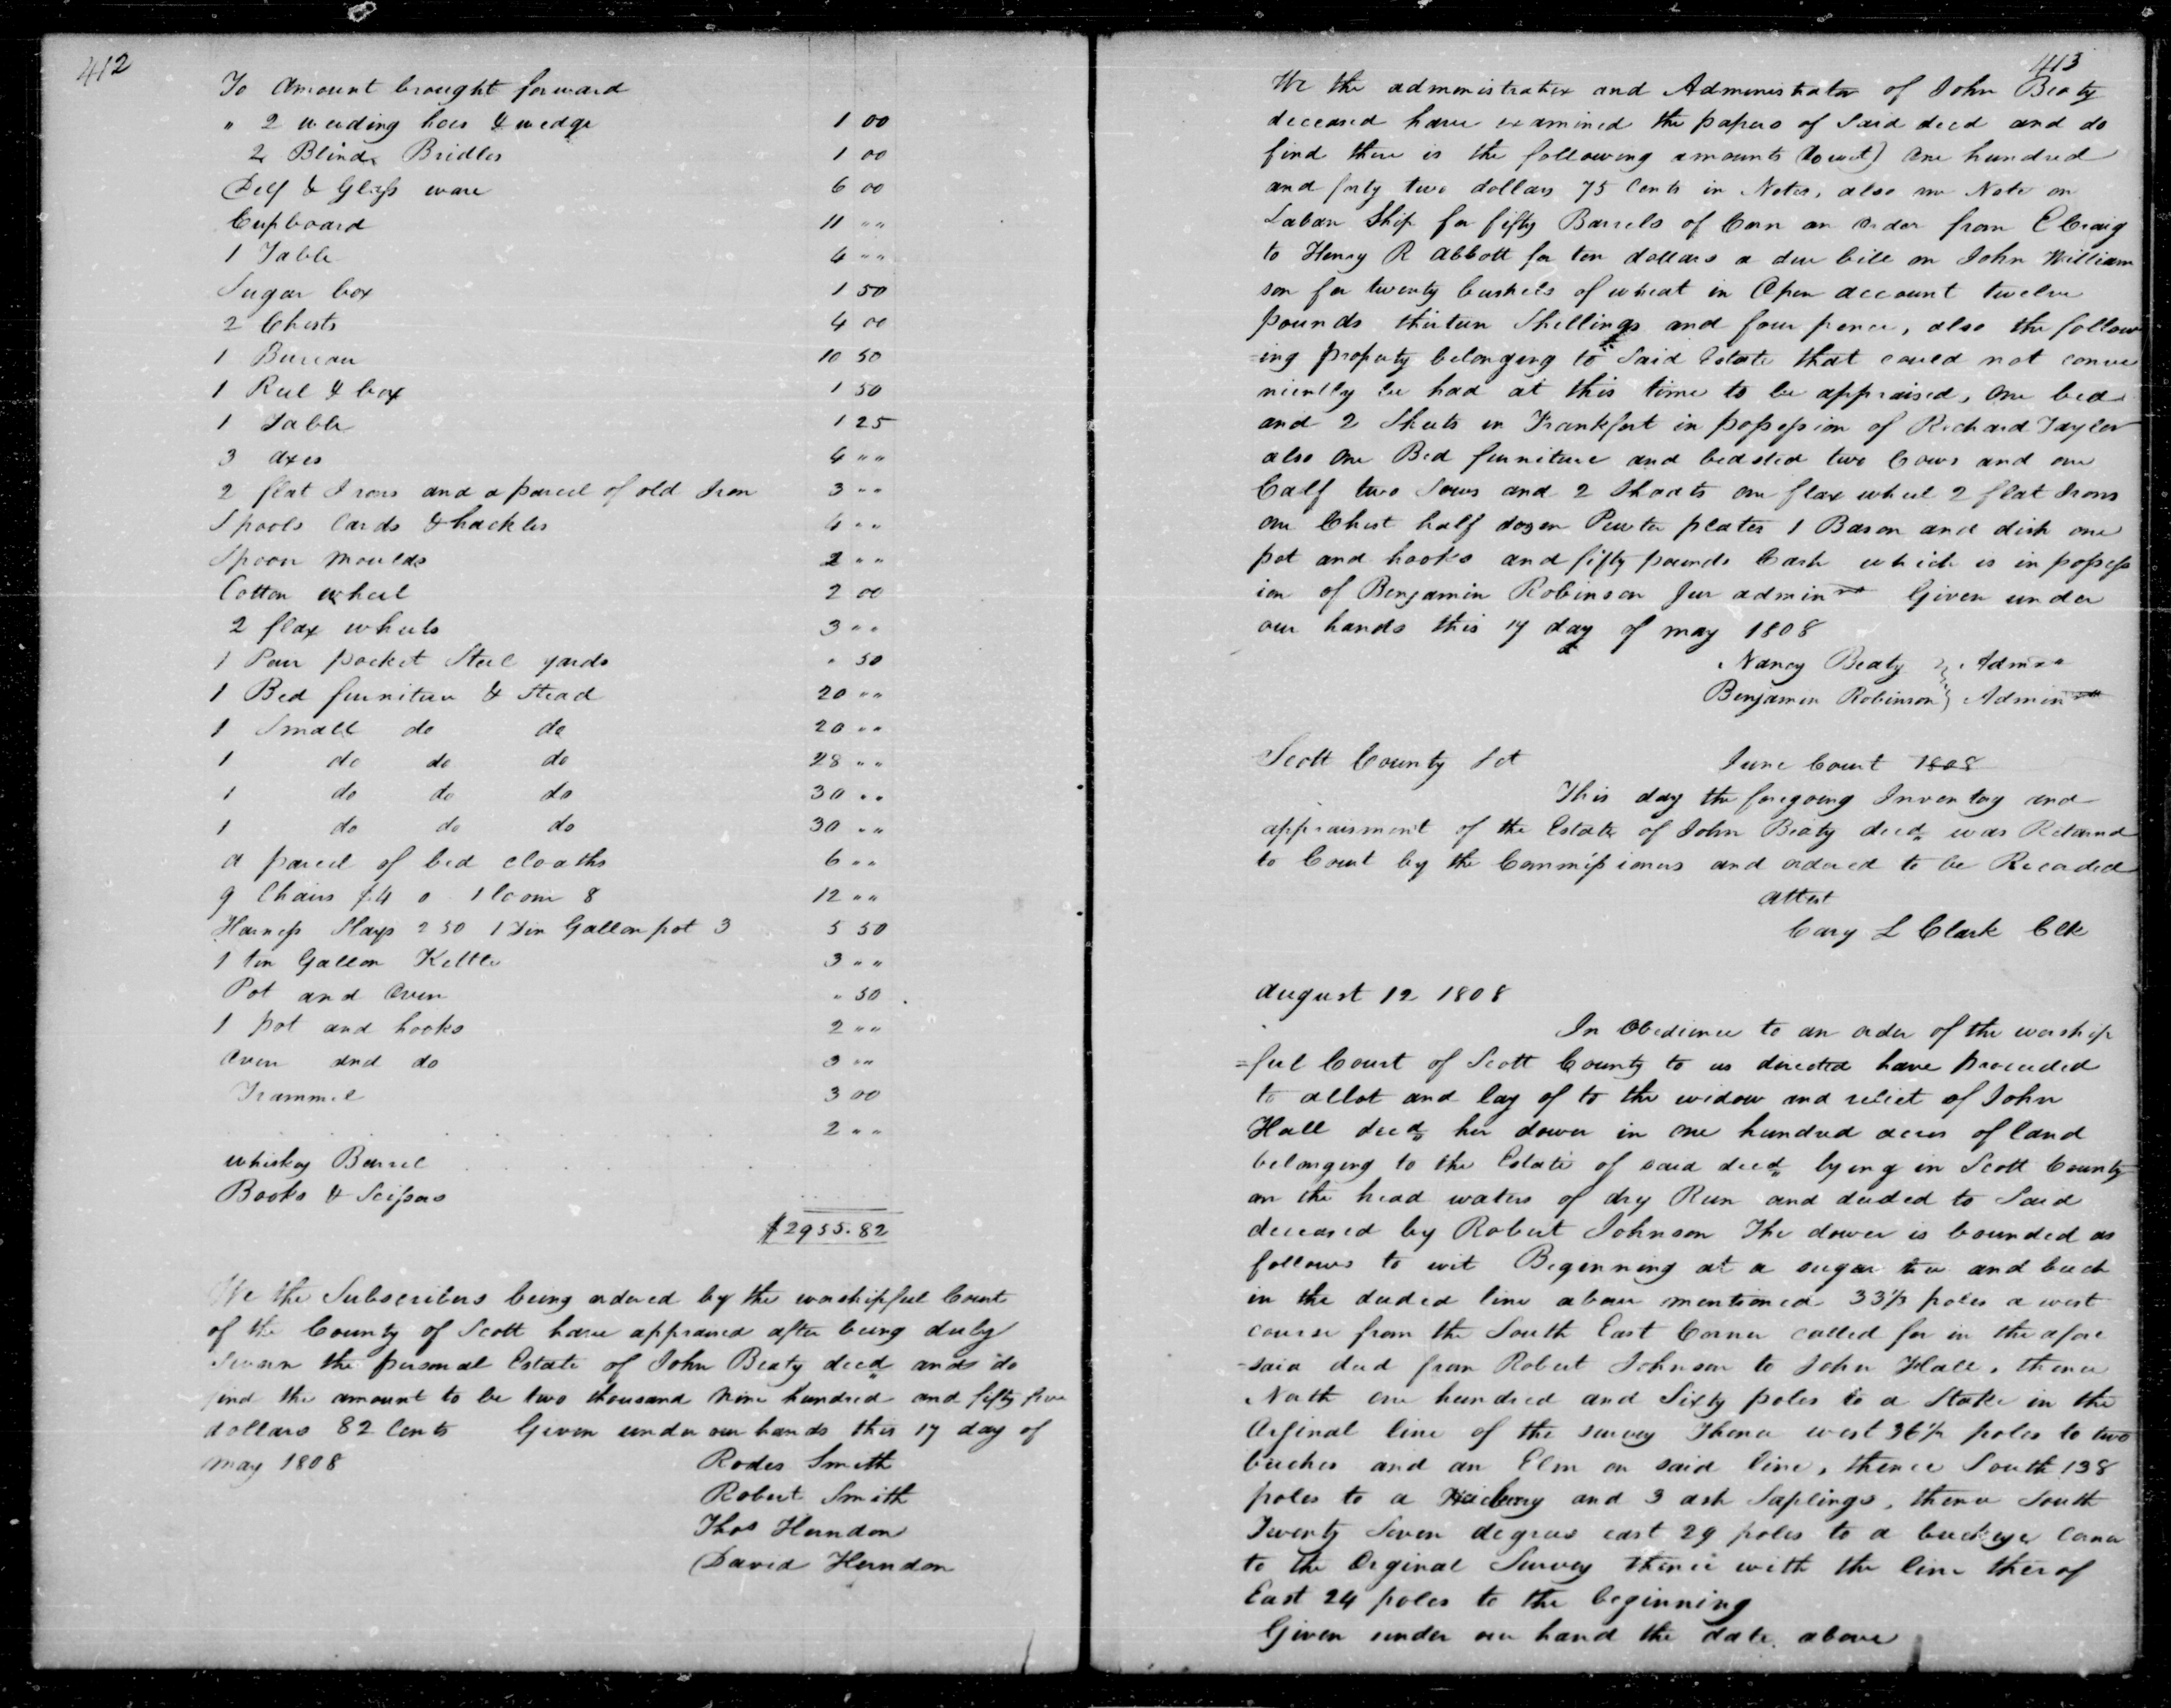 412
To Amount brought forward
" 2 weeding hoes & wedge 1 00
2 Blind Bridles 1 00
Delf & Glass ware 6 00
Cupboard 11 " "
1 Table 4 " "
Sugar box 1 50
2 Chests 4 00
1 Bureau 10 50
1 Reel & box 1 50
1 Table 1 25
3 axes 4 " "
2 flat Irons and a parcel of old Iron 3 " "
Spools Cards & hackles 4 " "
Spoon Moulds 2 " "
Cotton wheel 2 00
2 flax wheels 3 " "
1 Pair pocket Steel yards " 50
1 Bed furniture & Stead 20 " "
1 Small do do 20 " "
1 do do do 28 " "
1 do do do 30 " "
1 do do do 30 " "
a parcel of bed cloaths 6 " "
9 Chairs $4 0 1 loom 8 12 " "
Harness Slays 2 50 1 Tin Gallon pot 3 5 50
1 ten Gallon Kettle 3 " "
Pot and Oven " 50
1 pot and hooks 2 " "
Oven and do 3 " "
Trammel 3 00
2 " "
whiskey Barrel
Books & Scissors
$2955.82
We the Subscribers being ordered by the worshipful Court
of the County of Scott have appraised after being duly
Sworn the personal Estate of John Beaty decd and do
find the amount to be two thousand Nine hundred and fifty five
dollars 82 Cents Given under our hands this 17 day of
May 1808 Rodes Smith
Robert Smith
Thos Herndon
David Herndon
413
We the administratrix and Administrator of John Beaty
deceased have examined the papers of Said decd and do
find there is the following amounts (towit) One hundred
and forty two dollars 75 Cents in Notes, also one Note on
Laban Ship for fifty Barrels of Corn an order from E Craig
to Henry R Abbott for ten dollars a due bill on John William
son for twenty bushels of wheat in Open account twelve
pounds thirteen Shillings and four pence, also the follow
=ing property belonging to Said Estate that could not conve
niently be had at this time to be appraised, One bed
and 2 Sheets in Frankfort in possession of Richard Taylor
also One Bed furniture and bedsted two Cows and one
Calf two Sows and 2 Shoats one flax wheel 2 flat Irons
one Chest half dozen Pewter plates 1 Bason and dish one
pot and hooks and fifty pounds Cash which is in possess
ion of Benjamin Robinson Jur admin Given under
our hands this 17 day of may 1808
Nancy Beaty } Admxx
Benjamin Robinson } Admin
Scott County Sct June Court 1808
This day the foregoing Inventory and
appraisment of the Estate of John Beaty decd was Returnd
to Court by the Commissioners and ordered to be Recorded
attest
Cary L Clark Clk
August 12 1808
In Obedience to an order of the worship
=ful Court of Scott County to us directed have proceeded
to allot and lay of to the widow and relict of John
Hall decd her dower in one hundred acres of land
belonging to the Estate of said decd lying in Scott County
on the head waters of dry Run and deeded to Said
deceased by Robert Johnson The dower is bounded as
follows to wit Beginning at a sugar tree and beech
in the deeded line above mentioned 33⅓ poles a west
course from the South East Corner called for in the afore
=said deed from Robert Johnson to John Hall, thence
North one hundred and Sixty poles to a Stake in the
Orginal line of the survey Thence west 36½ poles to two
beeches and an Elm on said line, thence South 138
poles to a Hackberry and 3 ash Saplings, thence South
Twenty Seven degrees east 29 poles to a buckeye Corner
to the Orginal Survey thence with the line therof
East 24 poles to the beginning
Given under our hand the date above